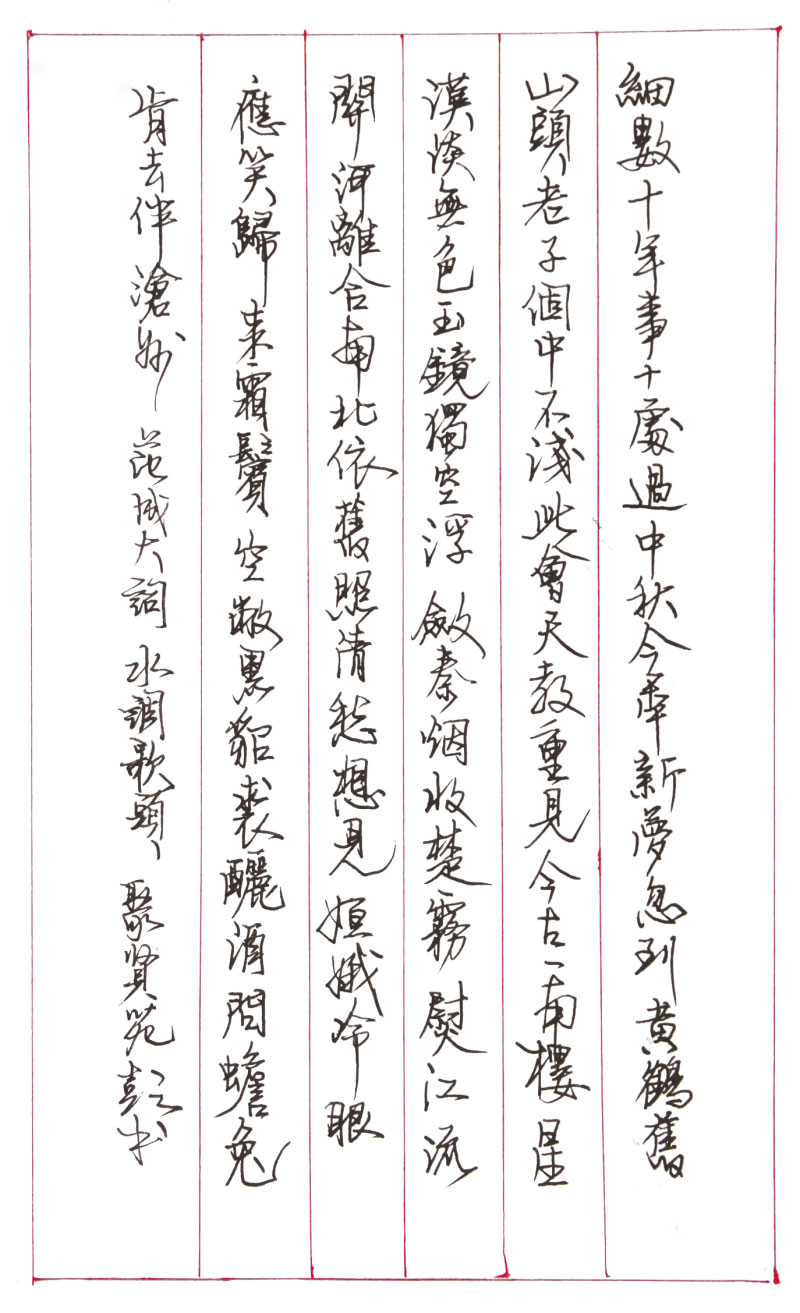 細數十年事十處過中秋今年新夢忽到黃鶴舊
山頭老子個中不淺此會天教重見今古一南樓星
漢淡無色玉鏡獨空浮斂秦烟收楚霧熨江流
關河離合南北依舊照清愁想見姮娥冷眼
應笑歸來霜鬢空敝黑貂裘釃酒問蟾兔
肯去伴滄洲 范成大詞 水調歌頭 聚賢苑彭书